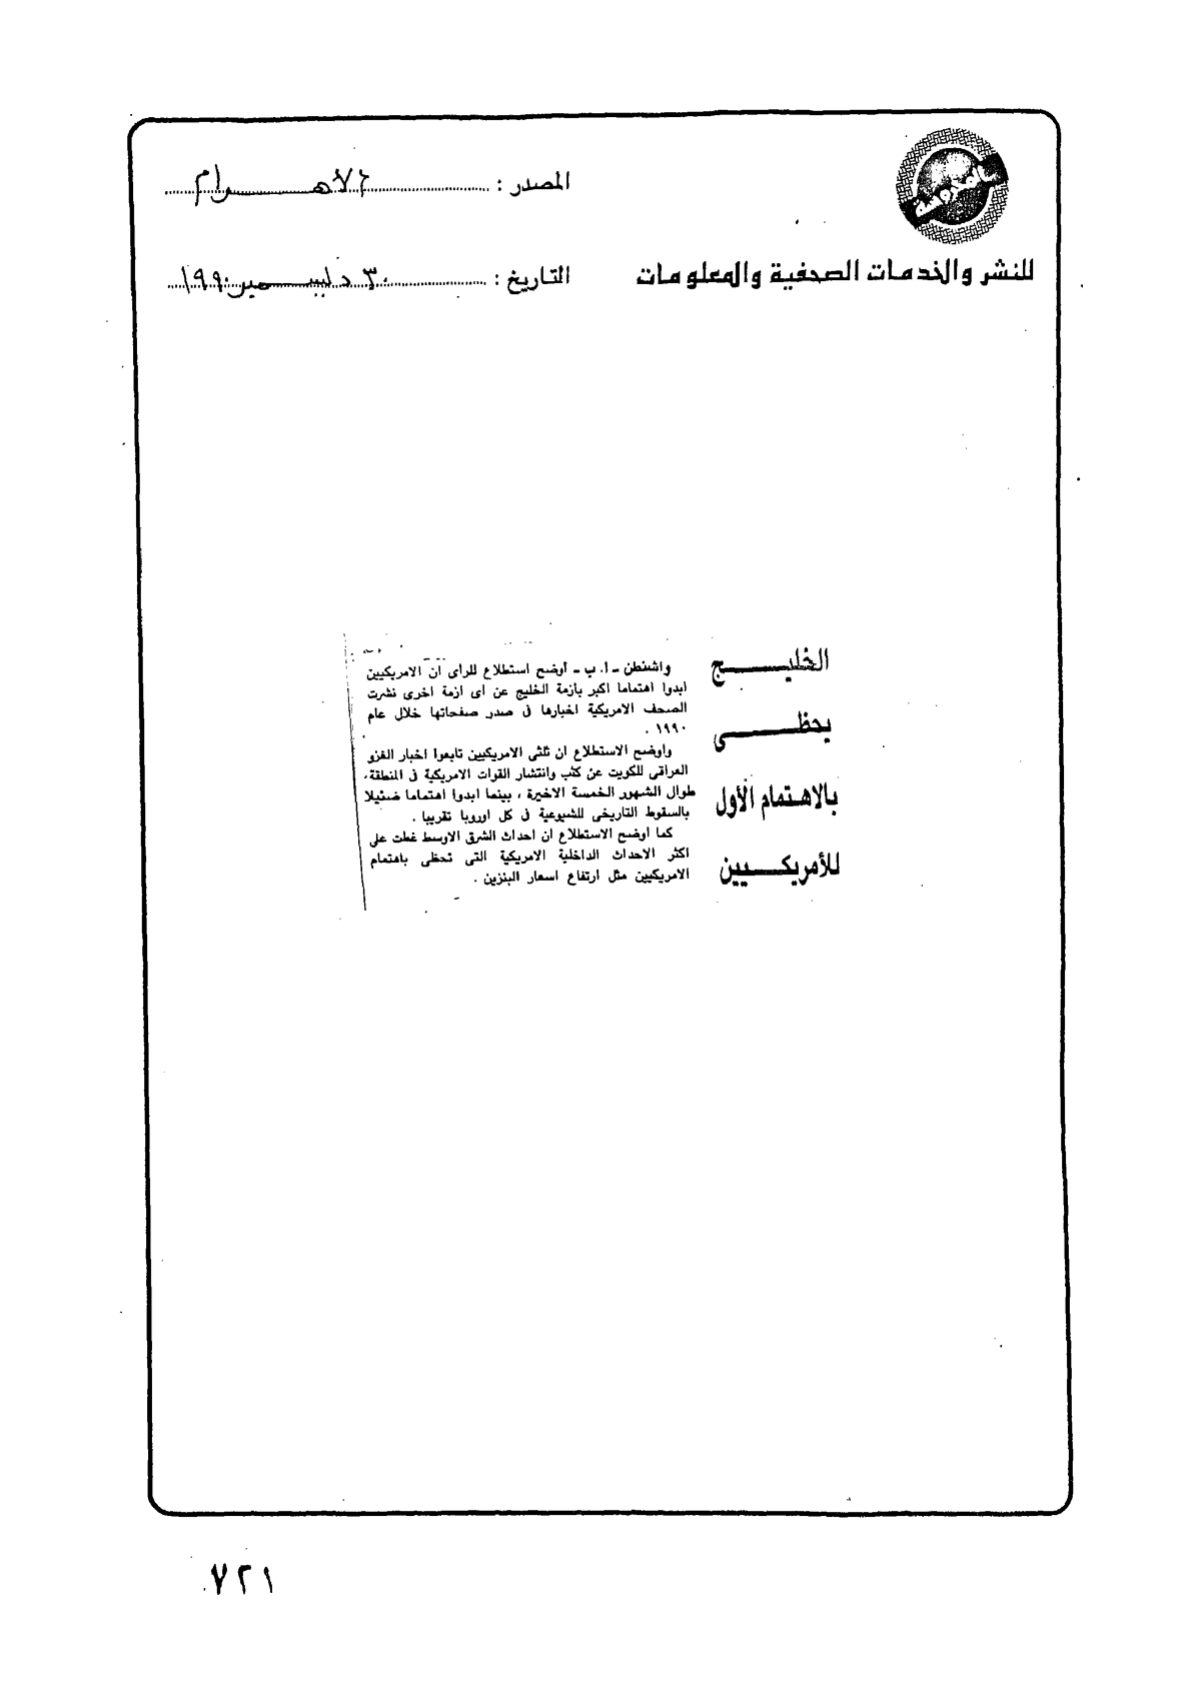 المصدر : الأهـــرام
للنشر والخدمات الصحفية والمعلومات
التاريخ : ٣٠ ديسمبر ١٩٩٠
الخليـــج
يحظـــى
بالاهتمام الأول
للأمريكـــيين
واشنطن - ا. ب - أوضح استطلاع للراى ان الامريكيين
ابدوا اهتماما اكبر بازمة الخليج عن اى ازمة اخرى نشرت
الصحف الامريكية اخبارها فى صدر صفحاتها خلال عام
١٩٩٠ .
واوضح الاستطلاع ان ثلثى الامريكيين تابعوا اخبار الغزو
العراقى للكويت عن كثب وانتشار القوات الامريكية فى المنطقة،
طوال الشهور الخمسة الاخيرة ، بينما ابدوا اهتماما ضئيلا
بالسقوط التاريخى للشيوعية فى كل اوروبا تقريبا .
كما اوضح الاستطلاع ان احداث الشرق الاوسط غطت على
اكثر الاحداث الداخلية الامريكية التى تحظى باهتمام
الامريكيين مثل ارتفاع اسعار البنزين .
٧٢١